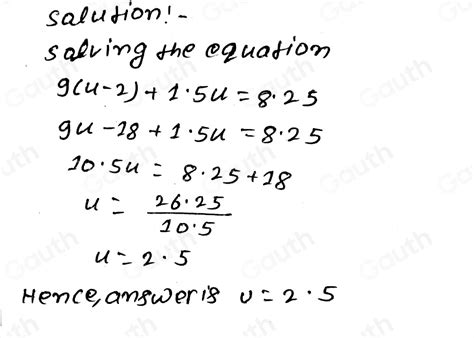 Salution:-
Salving the equation
9(u-2)+1.5u=8.25
9u-18+1.5u=8.25
10.5u=8.25+18
u=26.25/10.5
u=2.5
Hence,answer is u=2.5
Gauth